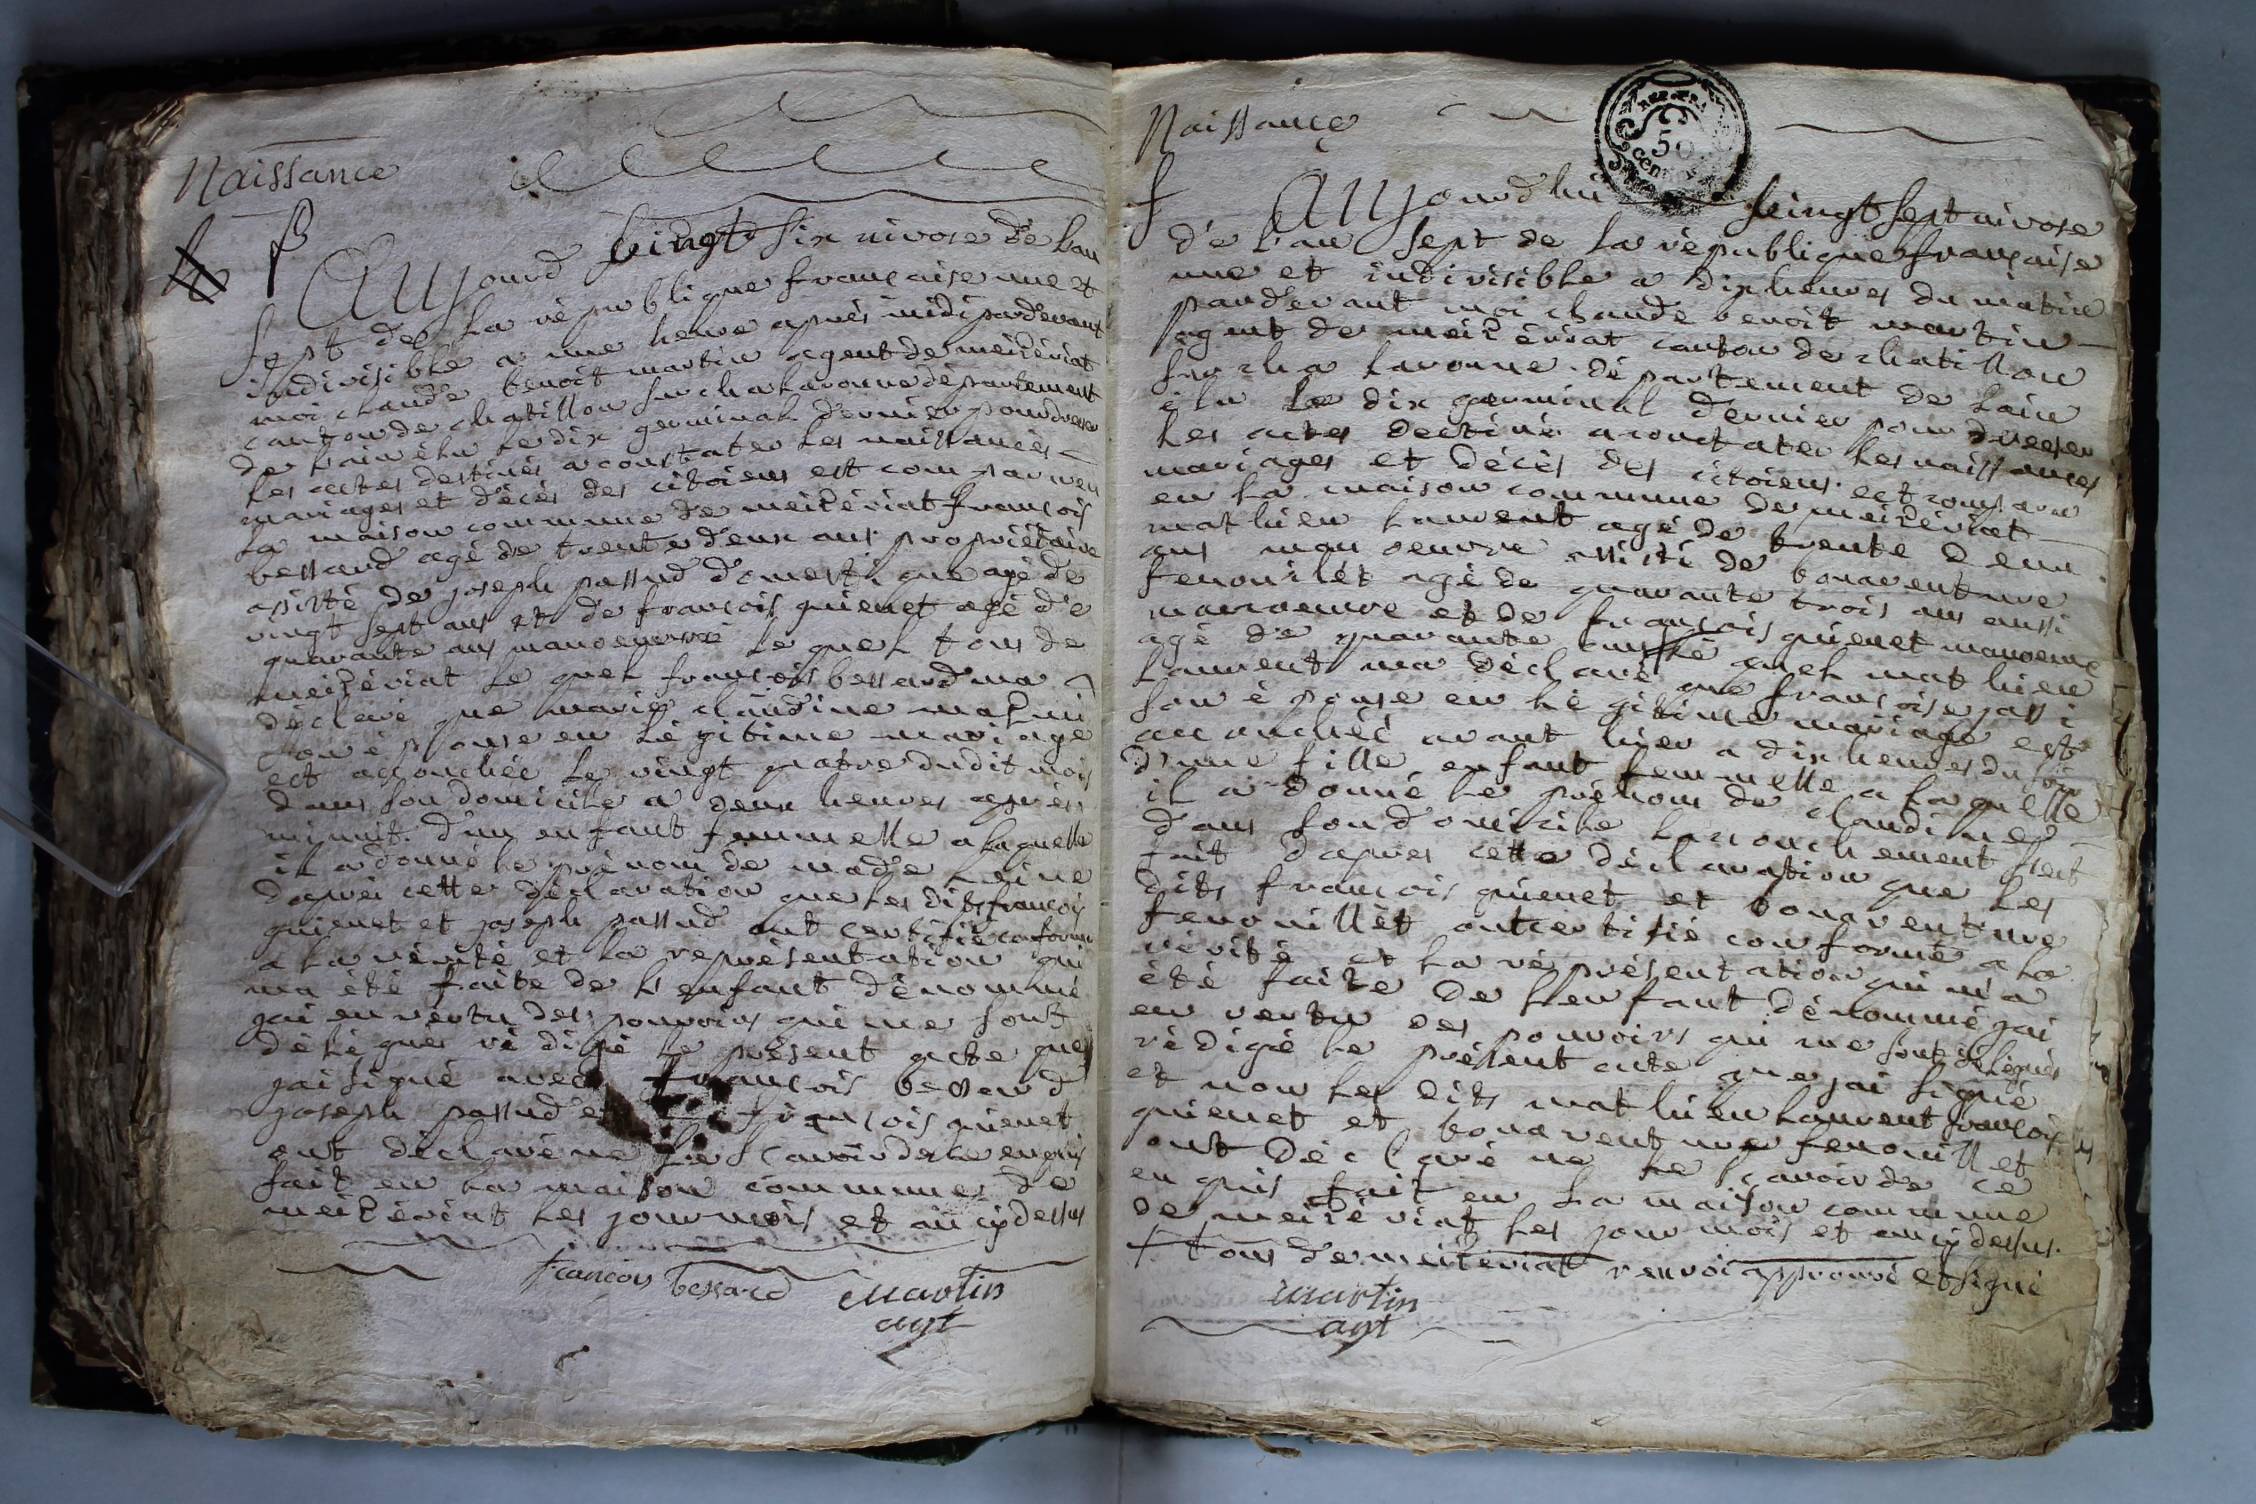 Naissance
Aujourd vingt six nivose de lan
sept de la république française une et
indivisible a une heure après midi pardevant
moi claude benoit martin agent de meizériat
canton de chatillon sur chalaronne département
de lain élu le dix germinal dernier pour dresser
les actes destinés a constater les naissances
mariages et décès des citoiens est comparu en
la maison commune de meizériat françois
bessard agé de trente deux ans propriétaire
assisté de joseph passud domestique agé de
vingt sept ans et de françois quienet agé de
quarante ans manoeuvre le quel tous de
meizériat le quel françois bessard ma
déclaré que marie claudine
son épouse en légitime mariage
est accouchée le vingt quatre dudit mois
dans son domicile a deux heures après
minuit d'un enfant femmelle a laquelle
il a donné le prénom de madeleine
daprès cette déclaration que les dits françois
quienet et joseph passud ont certifié conforme
a la vérité et la représentation qui
ma été faite de l'enfant dénommé
jai en vertu des pouvoirs qui me sont
délégués rédigé le présent acte que
jai signé avec françois bessard
joseph passud et françois quienet
ont déclaré ne le scavoir de ce enquis
fait en la maison commune de
meizériat les jour mois et an cy dessus
francois bessard martin
agt
Naissance
REP. FRA
50
CENT
Aujourdhui vingt sept nivose
de l'an sept de la république française
une et indivisible a dix heures du matin
pardevant moi claude benoit martin
agent de meizériat canton de chatillon
sur chalaronne département de lain
élu le dix germinal dernier pour dresser
les actes destinés a constater les naissances
mariages et décès des citoiens est comparu
en la maison commune de meizériat
mathieu laurent agé de trente deux
ans manoeuvre assisté de bonaventure
fenouillet agé de quarante trois ans aussi
manoeuvre et de françois quienet manoeuvre
agé de quarante ans le quel mathieu
laurent ma déclaré que françoise jassi
son épouse en légitime mariage est
accouchée avant hier a dix heures du soir
d'une fille enfant femmelle a laquelle
il a donné le prénom de claudine
dans son domicile laccouchement sest
fait daprès cette déclaration que les
dits françois quienet et bonaventure
fenouillet ont certifié conforme a la
vérité et la réprésentation qui ma
été faite de l'enfant dénommé jai
en vertu des pouvoirs qui me sont délégués
rédigé le présent acte que jai signé
et non les dits mathieu laurent françois
quienet et bonaventure fenouillet
ont déclaré ne le scavoir de ce
enquis fait en la maison commune
de meizériat les jour mois et an cy dessus.
tous de meizériat renvoi approuvé et signé
martin
agt